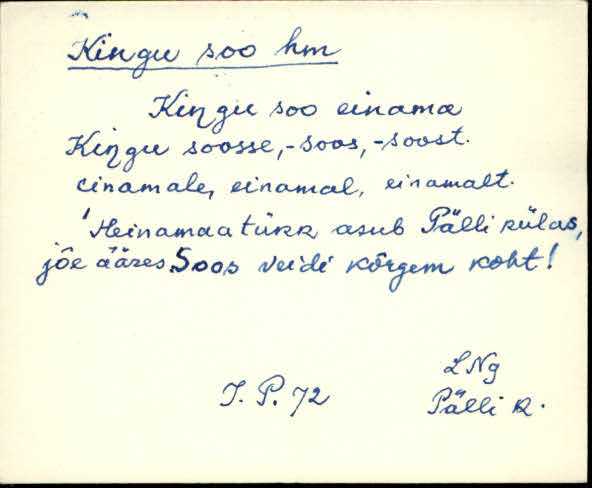 Kingu soo hm
Kiŋgu soo einama
Kiŋgu soosse, -soos, -soost.
einamale, einamal, einamalt.
'Heinamaatükk asub Pälli külas,
jõe ääres. Soos veidi kõrgem koht!
I. P. 72
LNg
Pälli k.